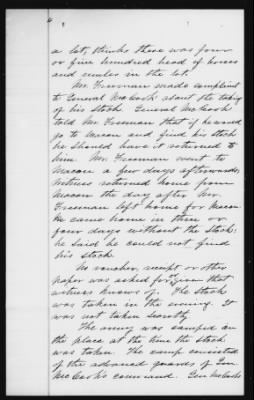 a lot, thinks there was four
or five hundred head of horses
and mules in the lot.
Mr. Freeman made complaint
to General McCook about the taking
of his stock General McCook
told Mr. Freeman that if he would
go to Macon and find his stock
he should have it returned to
him Mr. Freeman went to
Macon a few days afterwards.
Witness returned home from
Macon the day after Mr.
Freeman left home for Macon
He came home in three or
four days without the stock.
he said he could not find
his stock
No voucher, receipt or other
paper was asked for or given that
witness knows of. The stock
was taken in the evening. It
was not taken secretly
The army was camped on
the place at the time the stock
was taken. The camp consisted
of the advanced guards of Gen
McCook's command. Gen McCooks